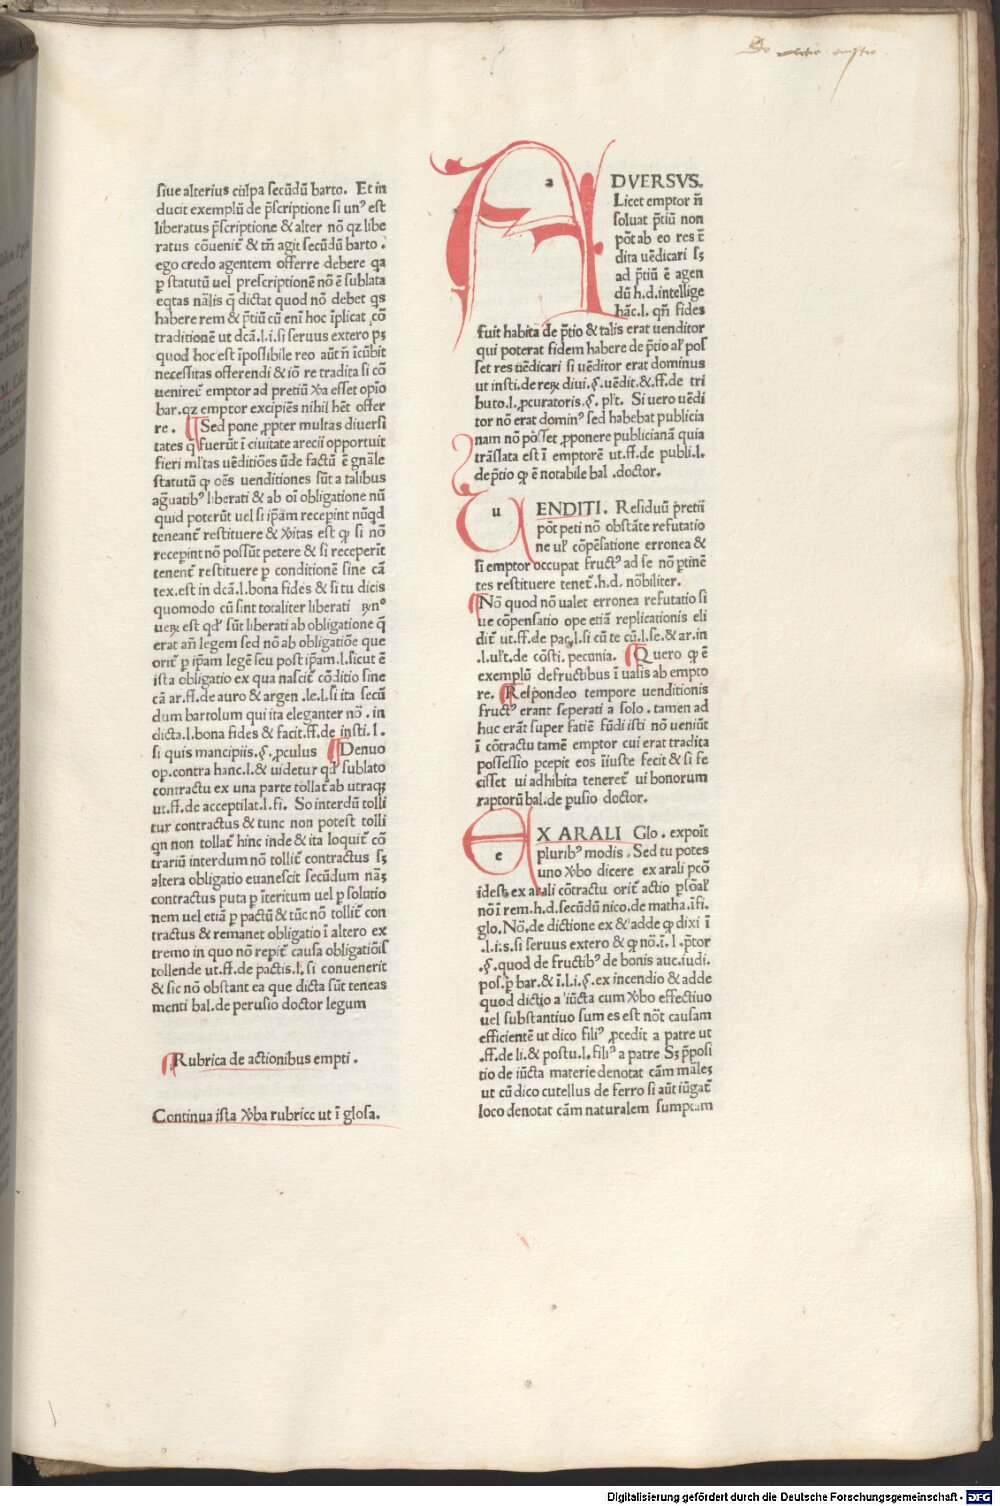 siue alterius culpa secūdū barto. Et in
ducit exemplū de p̄scriptione si unꝰ est
liberatus p̄scriptione & alter nō qz libe
ratus cōuenit᷑ & tn̄ agit secūdū barto.
ego credo agentem offerre debere qa
p statutū uel prescriptionē nō ē sublata
eqtas nālis q̄ dictat quod nō debet qs
habere rem & p̄tiū cū eni hoc īplicat cō
traditionē ut dcā.l.i.si seruus extero pꝫ
quod hoc est īpossibile reo aūt n̄ icūbit
necessitas offerendi & iō re tradita si cō
ueniret᷑ emptor ad pretiū xba esset opīo
bar.qz emptor excipiēs nihil hēt offer
re. Sed pone ꝓpter multas diuersi
tates q̄ fuerūt ī ciuitate arecii opportuit
fieri ml̄tas uēditiōes ūde factū ē gnāle
statutū qꝫ oēs uenditiones sūt a talibus
liberati & ab oī obligatione nū
quid poterūt uel si ip̄am recepint nūqd
teneant᷑ restituere & xitas est qꝫ si nō
recepint nō possūt petere & si receperīt
tenent᷑ restituere p conditionē sine cā
tex.est in dcā.l.bona fides & si tu dicis
quomodo cū sint totaliter liberati
ueꝝ est qd' sūt liberati ab obligatione q̄
erat an̄ legem sed nō ab obligatiōe que
orit᷑ p ip̄am legē seu post ip̄am.l.sicut ē
ista obligatio ex qua nascit᷑ cōditio sine
cā ar.ff.de auro & argen.le.l.si ita secū
dum bartolum qui ita eleganter nō. in
dicta.l.bona fides & facit.ff.de insti.l.
si quis mancipiis.§.ꝓculus Denuo
op.contra hanc.l.& uidetur qd' sublato
contractu ex una parte tollat᷑ ab utraqꝫ
ut.ff.de acceptilat.l.fi. So interdū tolli
tur contractus & tunc non potest tolli
qn non tollat᷑ hinc inde & ita loquit᷑ cō
trariū interdum nō tollit᷑ contractus sꝫ
altera obligatio euanescit secūdum nāꝫ
contractus puta p īteritum uel p solutio
nem uel etiā p pactū & tūc nō tollit᷑ con
tractus & remanet obligatio ī altero ex
tremo in quo nō repit᷑ causa obligatiōis
tollende ut.ff.de pactis.l.si conuenerit
& sic nō obstant ea que dicta sūt teneas
menti bal.de perusio doctor legum
Rubrica de actionibus empti.
Continua ista xba rubrice ut ī glosa.
a DVERSVS.
Licet emptor n̄
soluat p̄tiū non
pōt ab eo res t̄
dita uēdicari sꝫ
ad p̄tiū ē agen
dū h.d.intellige
hāc.l. qn̄ fides
fuit habita de p̄tio & talis erat uenditor
qui poterat fidem habere de p̄tio al' pos
set res uēdicari si uēditor erat dominus
ut insti.de reꝝ diui.§.uēdit.&.ff.de tri
buto.l.ꝓcuratoris.§. pl't. Si uero uēdi
tor nō erat dominꝰ sed habebat publicia
nam nō pōsset ꝓponere publicianā quia
trāslata est ī emptorē ut.ff.de publi.l.
de p̄tio qꝫ ē notabile bal.doctor.
u ENDITI. Residuū p̄retii
pōt peti nō obstāte refutatio
ne ul' cōpēsatione erronea &
si emptor occupat fructꝰ ad se nō ptinē
tes restituere tenet᷑.h.d. nōbiliter.
Nō quod nō ualet erronea refutatio si
ue cōpensatio ope etiā replicationis eli
dit᷑ ut.ff.de pac.l.si cū te cū.l.se.& ar.in
.l.ul't.de cōsti.pecunia. Quero qꝫ ē
exemplū defructibus ī ualis ab empto
re. Respondeo tempore uenditionis
fructꝰ erant seperati a solo. tamen ad
huc erāt super fatiē fūdi isti nō ueniūt
ī cōtractu tamē emptor cui erat tradita
possessio pcepit eos īiuste fecit & si fe
cisset ui adhibita teneret᷑ ui bonorum
raptorū bal.de pusio doctor.
e X ARALI Glo.expoit
pluribꝰ modis.Sed tu potes
uno xbo dicere ex arali pcō
idest ex arali cōtractu orit᷑ actio p̄sōal'
nō ī rem.h.d.secūdū nico.de matha.ī.fi.
glo.Nō.de dictione ex & adde qꝫ dixi ī
.l.i.s.si seruus extero & qꝫ nō.ī.l.p̄tor
.§.quod de fructibꝰ de bonis auc.iudi.
pos.p bar.& ī.l.i.§.ex incendio & adde
quod dictio a'iūcta cum xbo effectiuo
uel substantiuo sum es est nōt causam
efficientē ut dico filiꝰ ꝓcedit a patre ut
.ff.de li.& postu.l.filiꝰ a patre Sꝫ p̄posi
tio de iūcta materie denotat cām māleꝫ
ut cū dico cutellus de ferro si aūt iūgat᷑
loco denotat cām naturalem sumptam
Digitalisierung gefördert durch die Deutsche Forschungsgemeinschaft - DFG